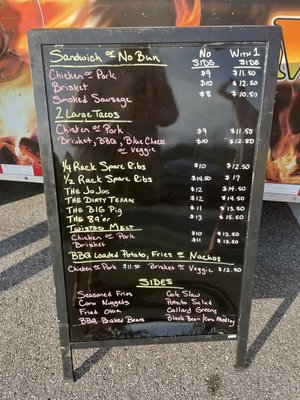 Sandwich or No Bun No Side With 1 Side
Chicken or Pork $9 $11.50
Brisket $10 $12.50
Smoked Sausage $8 $10.50
2 Large Tacos
Chicken or Pork $9 $11.50
Brisket, BBQ, Blue Cheese or Veggie $10 $12.50
1/4 Rack Spare Ribs $10 $12.50
1/2 Rack Spare Ribs $14.50 $17
The JoJoe $12 $14.50
The Dirty Texan $12 $14.50
The Big Pig $11 $13.50
The 89'er $13 $15.50
Twisted Melt
Chicken or Pork $10 $12.50
Brisket $11 $13.50
BBQ Loaded Potato, Fries or Nachos
Chicken or Pork $11.50 Brisket or Veggie $12.50
Sides
Seasoned Fries Cole Slaw
Corn Nuggets Potato Salad
Fried Okra Collard Greens
BBQ Baked Beans Black Bean/Corn Medley